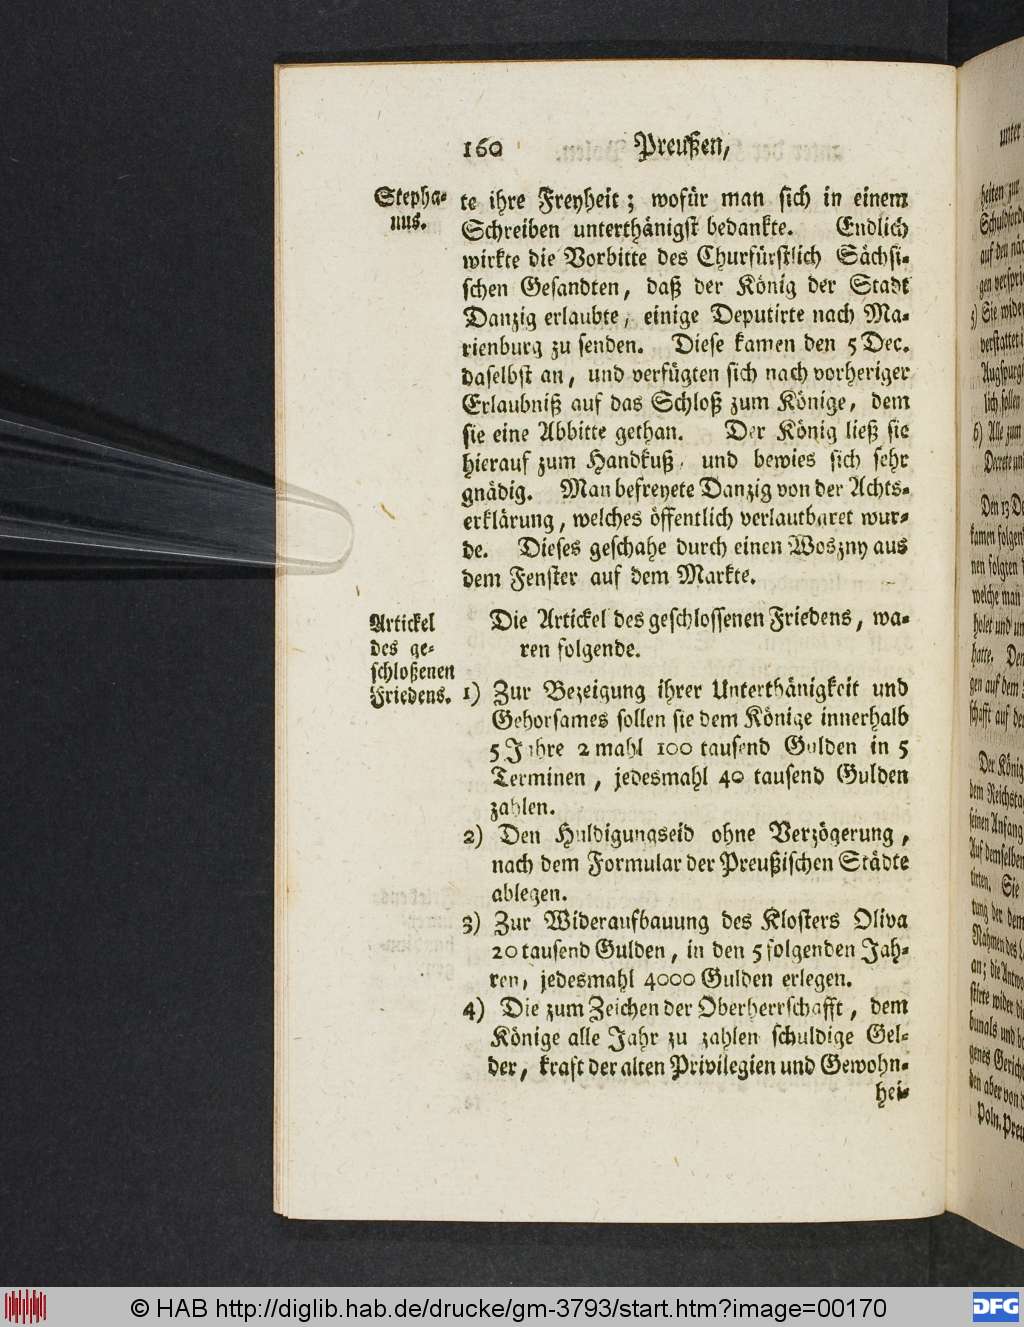 160 Preußen,
Stepha-
nus.
te ihre Freyheit; wofür man sich in einem
Schreiben unterthänigst bedankte. Endlich
wirkte die Vorbitte des Churfürstlich Sächsi-
schen Gesandten, daß der König der Stadt
Danzig erlaubte, einige Deputirte nach Ma-
rienburg zu senden. Diese kamen den 5 Dec.
daselbst an, und verfügten sich nach vorheriger
Erlaubniß auf das Schloß zum Könige, dem
sie eine Abbitte gethan. Der König ließ sie
hierauf zum Handkuß, und bewies sich sehr
gnädig. Man befreyete Danzig von der Achts-
erklärung, welches öffentlich verlautbaret wur-
de. Dieses geschahe durch einen Woszny aus
dem Fenster auf dem Markte.
Artickel
des ge-
schloßenen
Friedens.
Die Artickel des geschlossenen Friedens, wa-
ren folgende.
1) Zur Bezeigung ihrer Unterthänigkeit und
Gehorsames sollen sie dem Könige innerhalb
5 Jahre 2 mahl 100 tausend Gulden in 5
Terminen, jedesmahl 40 tausend Gulden
zahlen.
2) Den Huldigungseid ohne Verzögerung,
nach dem Formular der Preußischen Städte
ablegen.
3) Zur Wideraufbauung des Klosters Oliva
20 tausend Gulden, in den 5 folgenden Jah-
ren, jedesmahl 4000 Gulden erlegen.
4) Die zum Zeichen der Oberherrschafft, dem
Könige alle Jahr zu zahlen schuldige Gel-
der, kraft der alten Privilegien und Gewohn-
hei-
unter
heiten zur
auf den
5) Sie
lich sollen
6) Alle zum
Den 13
kamen
nen folgten
welche man
holet und
hatte. Den
gen auf dem
schafft auf
Der König
dem
seinen Anfang
Auf demselben
tirten. Sie
tung der dem
Nahmen des
an; die
wider
bunals und
genes
den aber von
Poln. Preu
© HAB http://diglib.hab.de/drucke/gm-3793/start.htm?image=00170
DFG